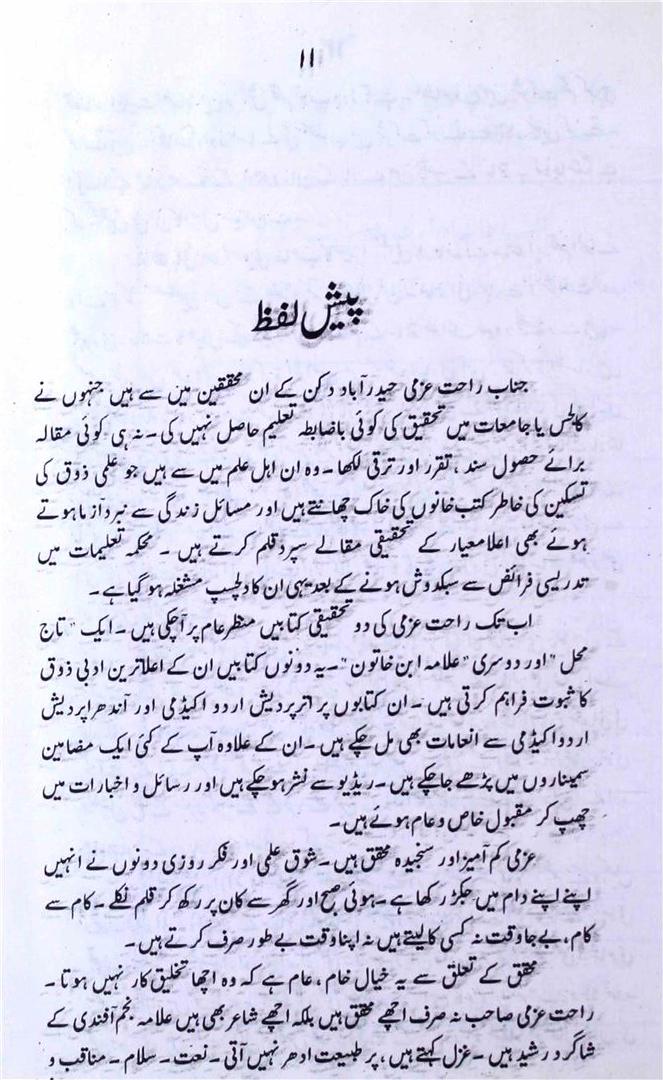 ۱۱
پیش لفظ
جناب راحت عزمی حیدرآباد دکن کے ان محققین میں سے ہیں جنہوں نے
کالجس یا جامعات میں تحقیق کی کوئی باضابطہ تعلیم حاصل نہیں کی۔ نہ ہی کوئی مقالہ
برائے حصول سند، تقرر اور ترقی لکھا۔ وہ ان اہل علم میں سے ہیں جو علمی ذوق کی
تسکین کی خاطر کتب خانوں کی خاک چھانتے ہیں اور مسائل زندگی سے نبرد آزما ہوتے
ہوئے بھی اعلا معیار کے تحقیقی مقالے سپرد قلم کرتے ہیں۔ محکمہ تعلیمات میں
تدریسی فرائض سے سبکدوش ہونے کے بعد یہی ان کا دلچسپ مشغلہ ہو گیا ہے۔
اب تک راحت عزمی کی دو تحقیقی کتابیں منظر عام پر آچکی ہیں۔ ایک "تاج
محل" اور دوسری "علامہ ابن خاتون"۔ یہ دونوں کتابیں ان کے اعلا ترین ادبی ذوق
کا ثبوت فراہم کرتی ہیں۔ ان کتابوں پر اترپردیش اردو اکیڈمی اور آندھراپردیش
اردو اکیڈمی سے انعامات بھی مل چکے ہیں۔ ان کے علاوہ آپ کے کئی ایک مضامین
سمیناروں میں پڑھے جاچکے ہیں۔ ریڈیو سے نشر ہوچکے ہیں اور رسائل و اخبارات میں
چھپ کر مقبول خاص و عام ہوئے ہیں۔
عزمی کم آمیز اور سنجیدہ محقق ہیں۔ شوق علمی اور فکر روزی دونوں نے انہیں
اپنے اپنے دام میں جکڑ رکھا ہے۔ ہوئی صبح اور گھر سے کان پر رکھ کر قلم نکلے۔ کام سے
کام، بے جا وقت نہ کسی کا لیتے ہیں نہ اپنا وقت بے طور صرف کرتے ہیں۔
محقق کے تعلق سے یہ خیال خام، عام ہے کہ وہ اچھا تخلیق کار نہیں ہوتا۔
راحت عزمی صاحب نہ صرف اچھے محقق ہیں بلکہ اچھے شاعر بھی ہیں علامہ نجم آفندی کے
شاگرد رشید ہیں۔ غزل کہتے ہیں، پر طبیعت ادھر نہیں آتی۔ نعت۔ سلام۔ مناقب و